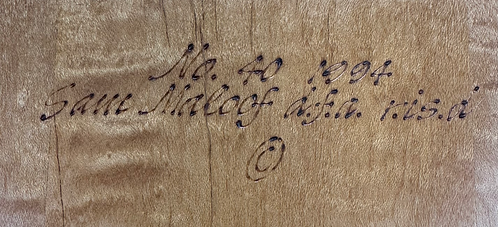 No. 40 1994
Sam Maloof d.f.a. r.i.s.d
©